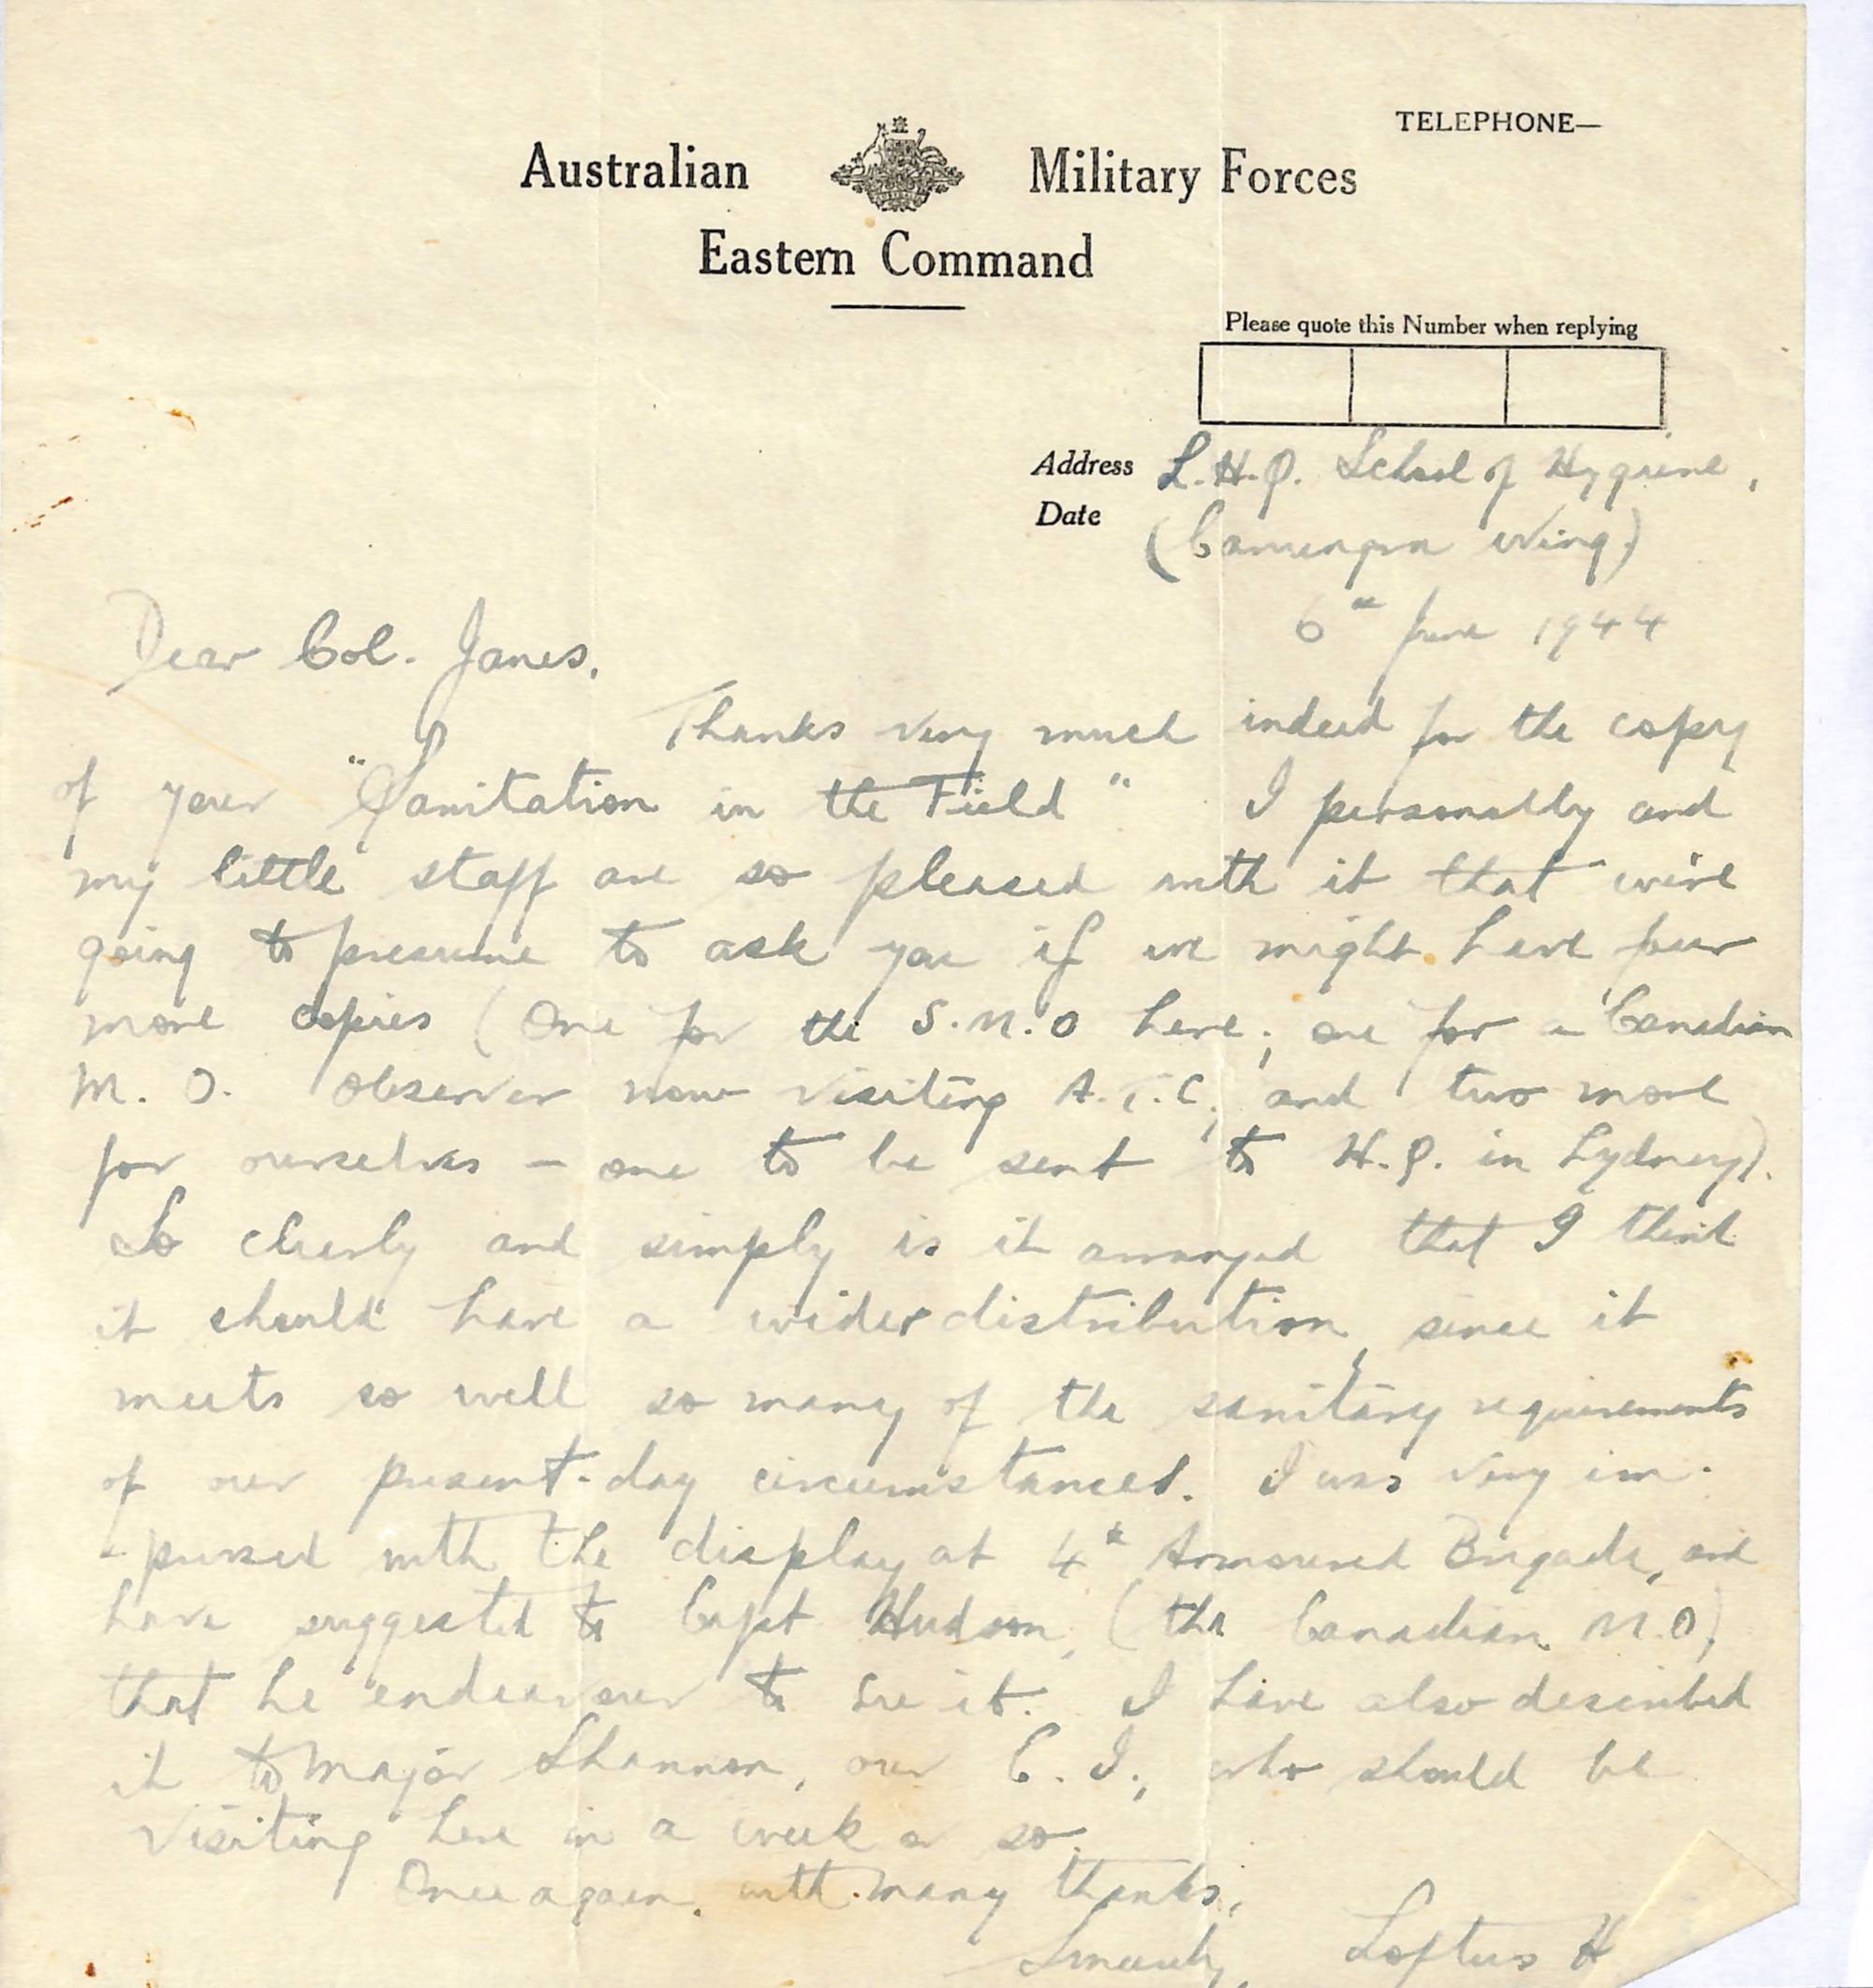 TELEPHONE—
Australian Military Forces
Eastern Command
Please quote this Number when replying
Address L.H.Q. School of Hygiene,
Date (Canungra Wing)
6th June 1944
Dear Col. James,
Thanks very much indeed for the copy
of your "Sanitation in the Field" I personally and
my little staff are so pleased with it that we're
going to presume to ask you if we might have four
more copies (One for the S.M.O here; one for a Canadian
M.O. Observer now visiting A.T.C; and two more
for ourselves – one to be sent to H.Q. in Sydney).
So clearly and simply is it arranged that I think
it should have a wider distribution, since it
meets so well so many of the sanitary requirements
of our present-day circumstances. I was very im-
-pressed with the display at 4th Armoured Brigade, and
have suggested to Capt Hudson, (the Canadian M.O)
that he endeavour to see it. I have also described
it to Major Shannon, our C.I., who should be
visiting here in a week or so.
Once again, with many thanks,
Sincerely, Loftus H